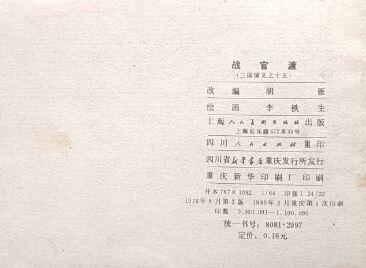 战官渡
(三国演义之十五)
改编 胡雁
绘画 李铁生
上海人民美术出版社出版
上海长乐路672弄33号
四川人民出版社重印
四川省新华书店重庆发行所发行
重庆新华印刷厂印刷
开本 787×1092 1/64 印张 1 24/32
1979年8月第3版 1980年2月重庆第1次印刷
印数 0,001,001—1,100,000
统一书号：8081·2997
定价：0.16元